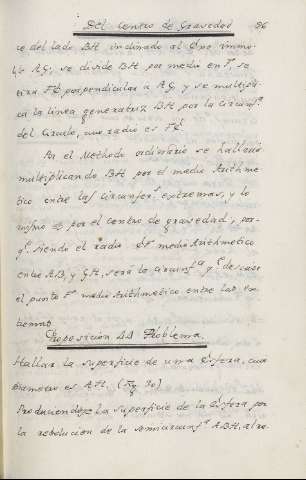 Del Centro de Gravedad 96
ce del lado BH inclinado al Exe immo-
ble AG; se divide BH por medio en F, se
tira FC perpendicular a AG y se multipli-
ca la linea generatriz BH por la circunf.ª
del Circulo, cuio radio es FC.
Por el Methodo ordinario se hallaria
multiplicando BH por el medio Arithme
tico entre las circunfer.s extremas, y lo
mismo es por el centro de gravedad, por-
q.e siendo el radio CF medio Arithmetico
entre AB, y GH, será la circunf.ª q.e descrive
el punto F medio Arithmetico entre las ex-
tremas
Proposicion 44 Problema
Hallar la superficie de una Esfera, cuio
Diametro es AH. (Fig 70)
Produciendose la superficie de la Esfera por
la revolucion de la semicircunf.ª ABH, al re-